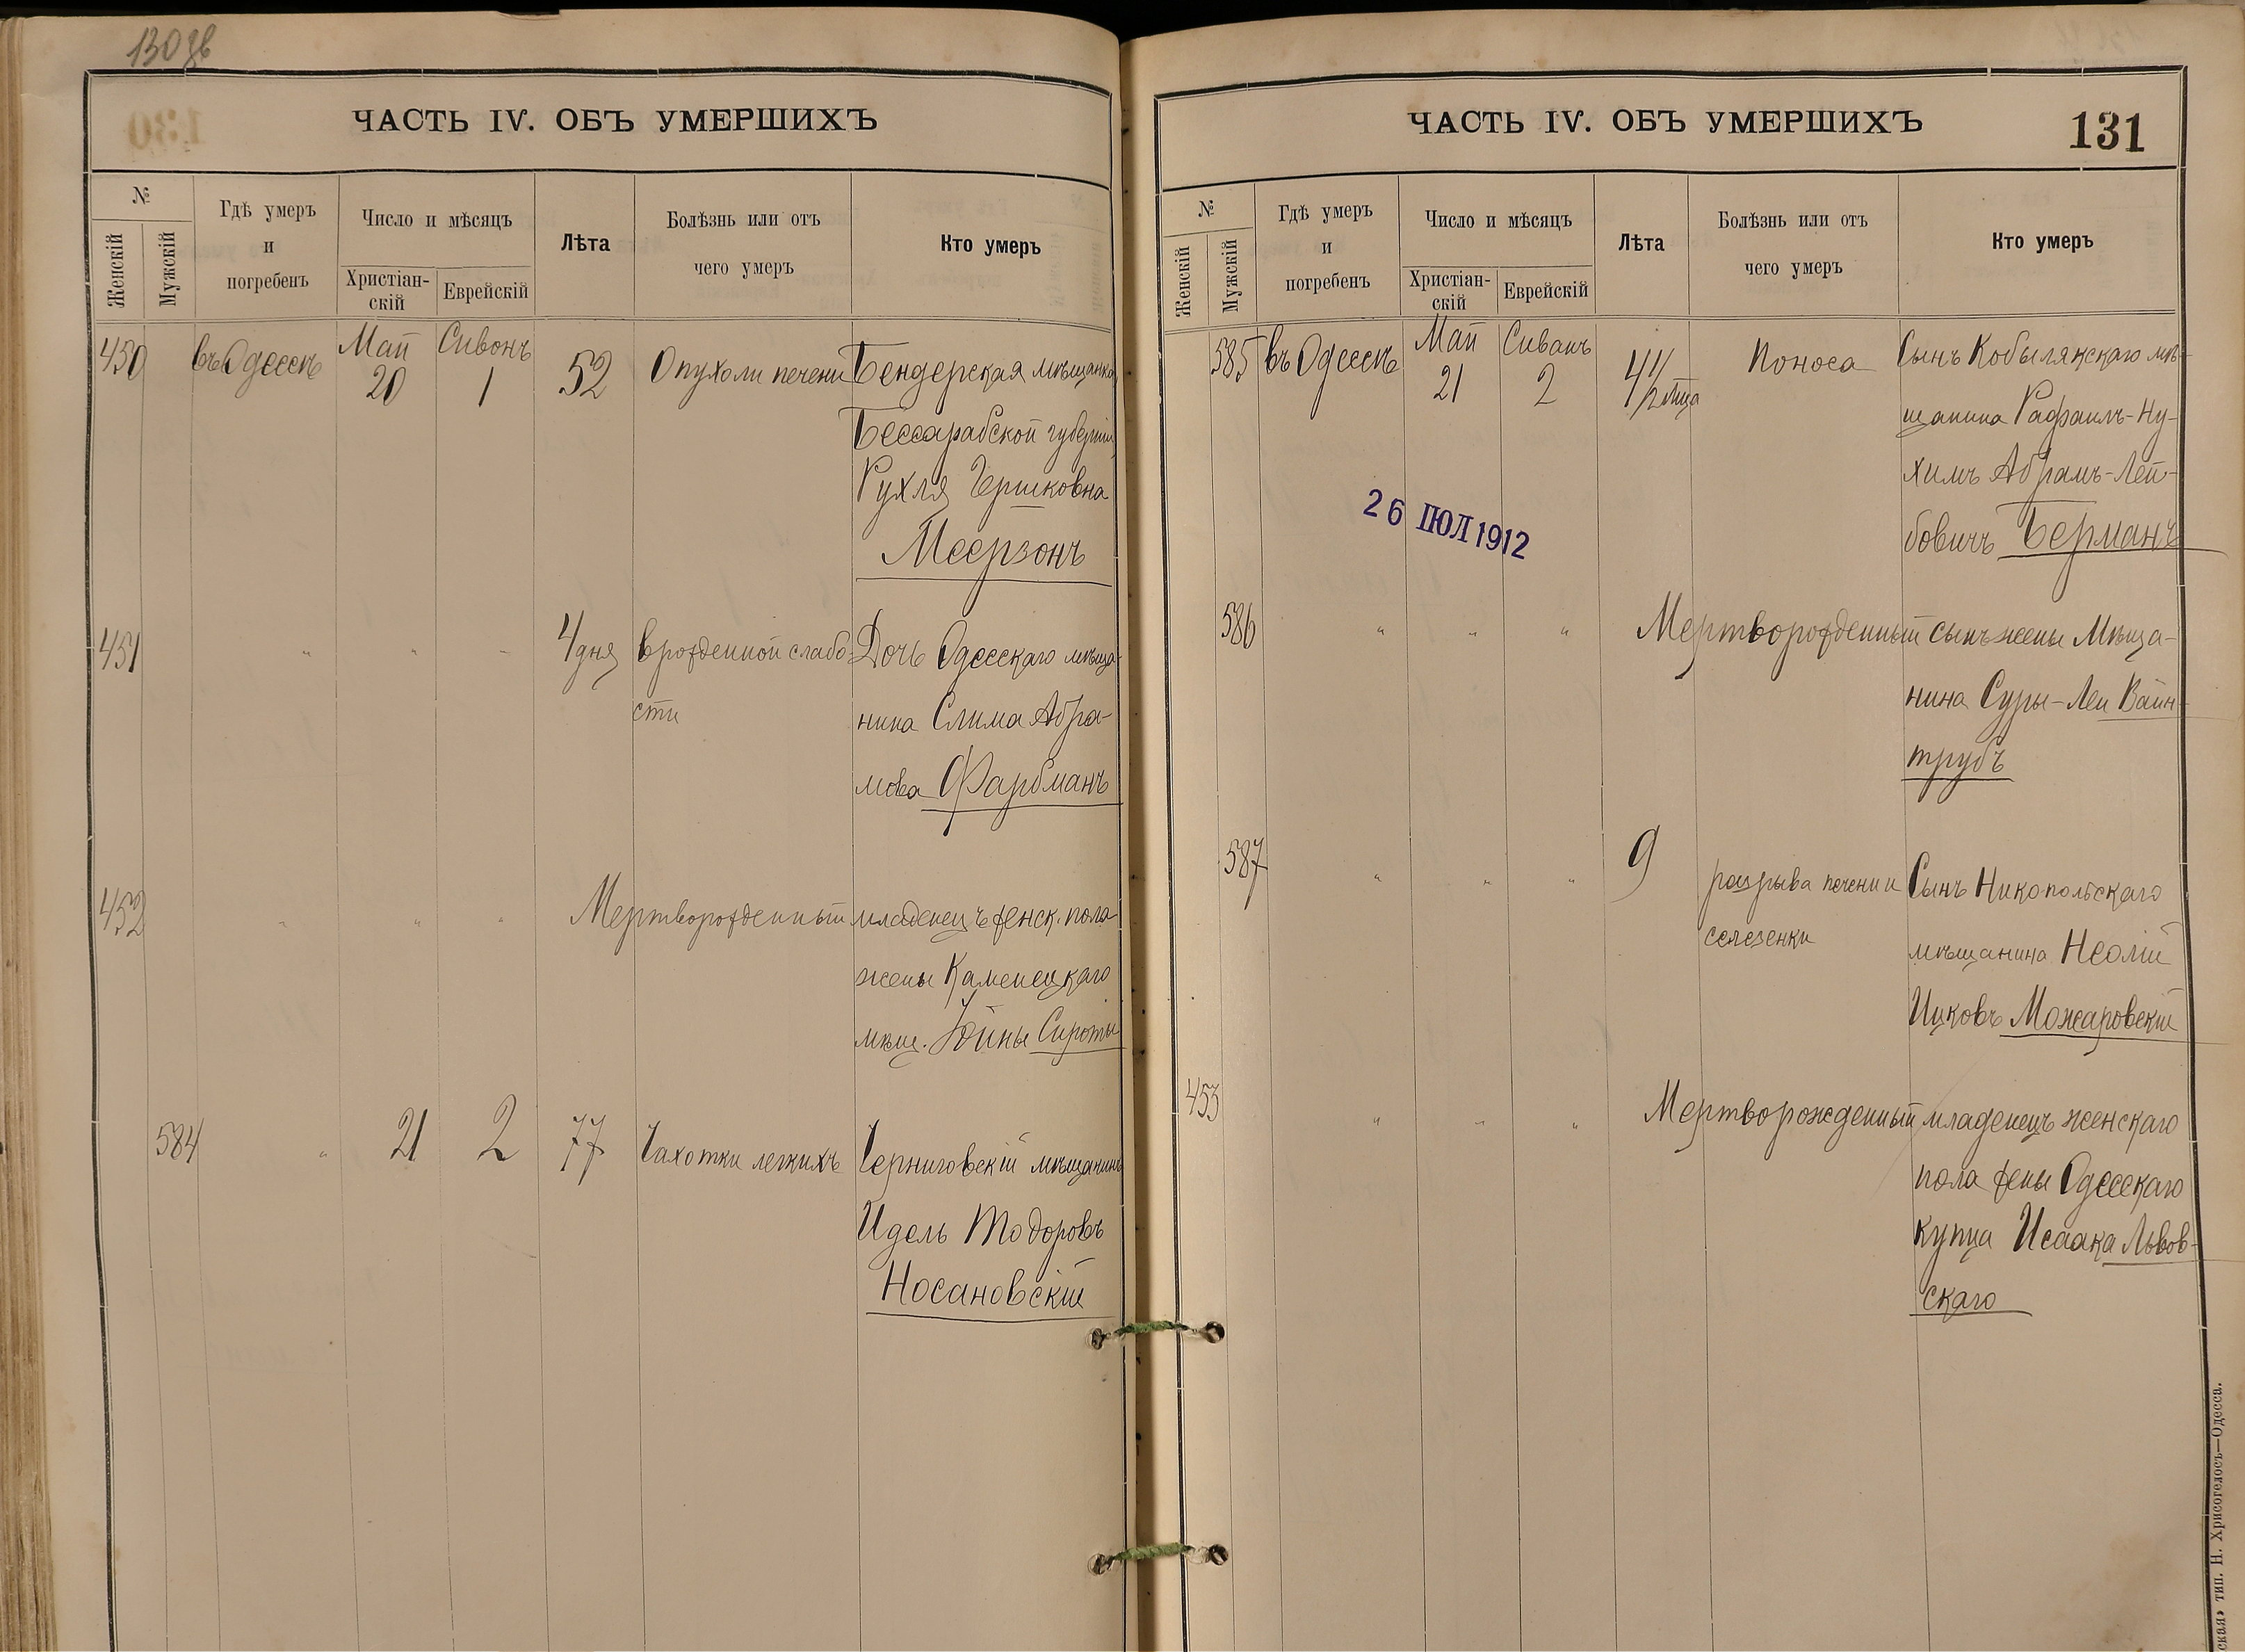 130 зв
ЧАСТЬ IV. ОБЪ УМЕРШИХЪ
№
Женскій
Мужскій
Гдѣ умеръ
и
погребенъ
Число и мѣсяцъ
Христіан-
скій
Еврейскій
Лѣта
Болѣзнь или отъ
чего умеръ
Кто умеръ
450 въ Одессѣ Май 20 Сивонъ 1 52 Опухоли печени Бендерская мѣщанка
Бессарабской губерніи
Рухля Гершковна
Меерзонъ
451 " " " 4 дня врожденной слабо- Дочь Одесскаго мѣща-
сти нина Слима Абра-
мова Фарбманъ
452 " " " Мертворожденный младенецъ женск. пола
жены Каменецкаго
мѣщ. Юйны Сироты
584 " 21 2 77 Чахотки легкихъ Черниговскій мѣщанинъ
Идель Тодоровъ
Носановскій
ЧАСТЬ IV. ОБЪ УМЕРШИХЪ
131
№
Женскій
Мужскій
Гдѣ умеръ
и
погребенъ
Число и мѣсяцъ
Христіан-
скій
Еврейскій
Лѣта
Болѣзнь или отъ
чего умеръ
Кто умеръ
585 въ Одессѣ Май 21 Сиванъ 2 4 1/2 мца Поноса Сынъ Кобылякскаго мѣ-
щанина Рафаилъ-Ну-
химъ Абрамъ-Лей-
бовичъ Берманъ
26 ІЮЛ 1912
586 " " " Мертворожденный сынъ жены Мѣща-
нина Суры-Леи Вайн-
трубъ
587 " " " 9 разрыва печени и Сынъ Никопольскаго
селезенки мѣщанина Неолій
Ицковъ Можаровскій
453 " " " Мертворожденный младенецъ женскаго
пола жены Одесскаго
купца Исаака Львов-
скаго
тип. Н. Хрисогелосъ—Одесса.